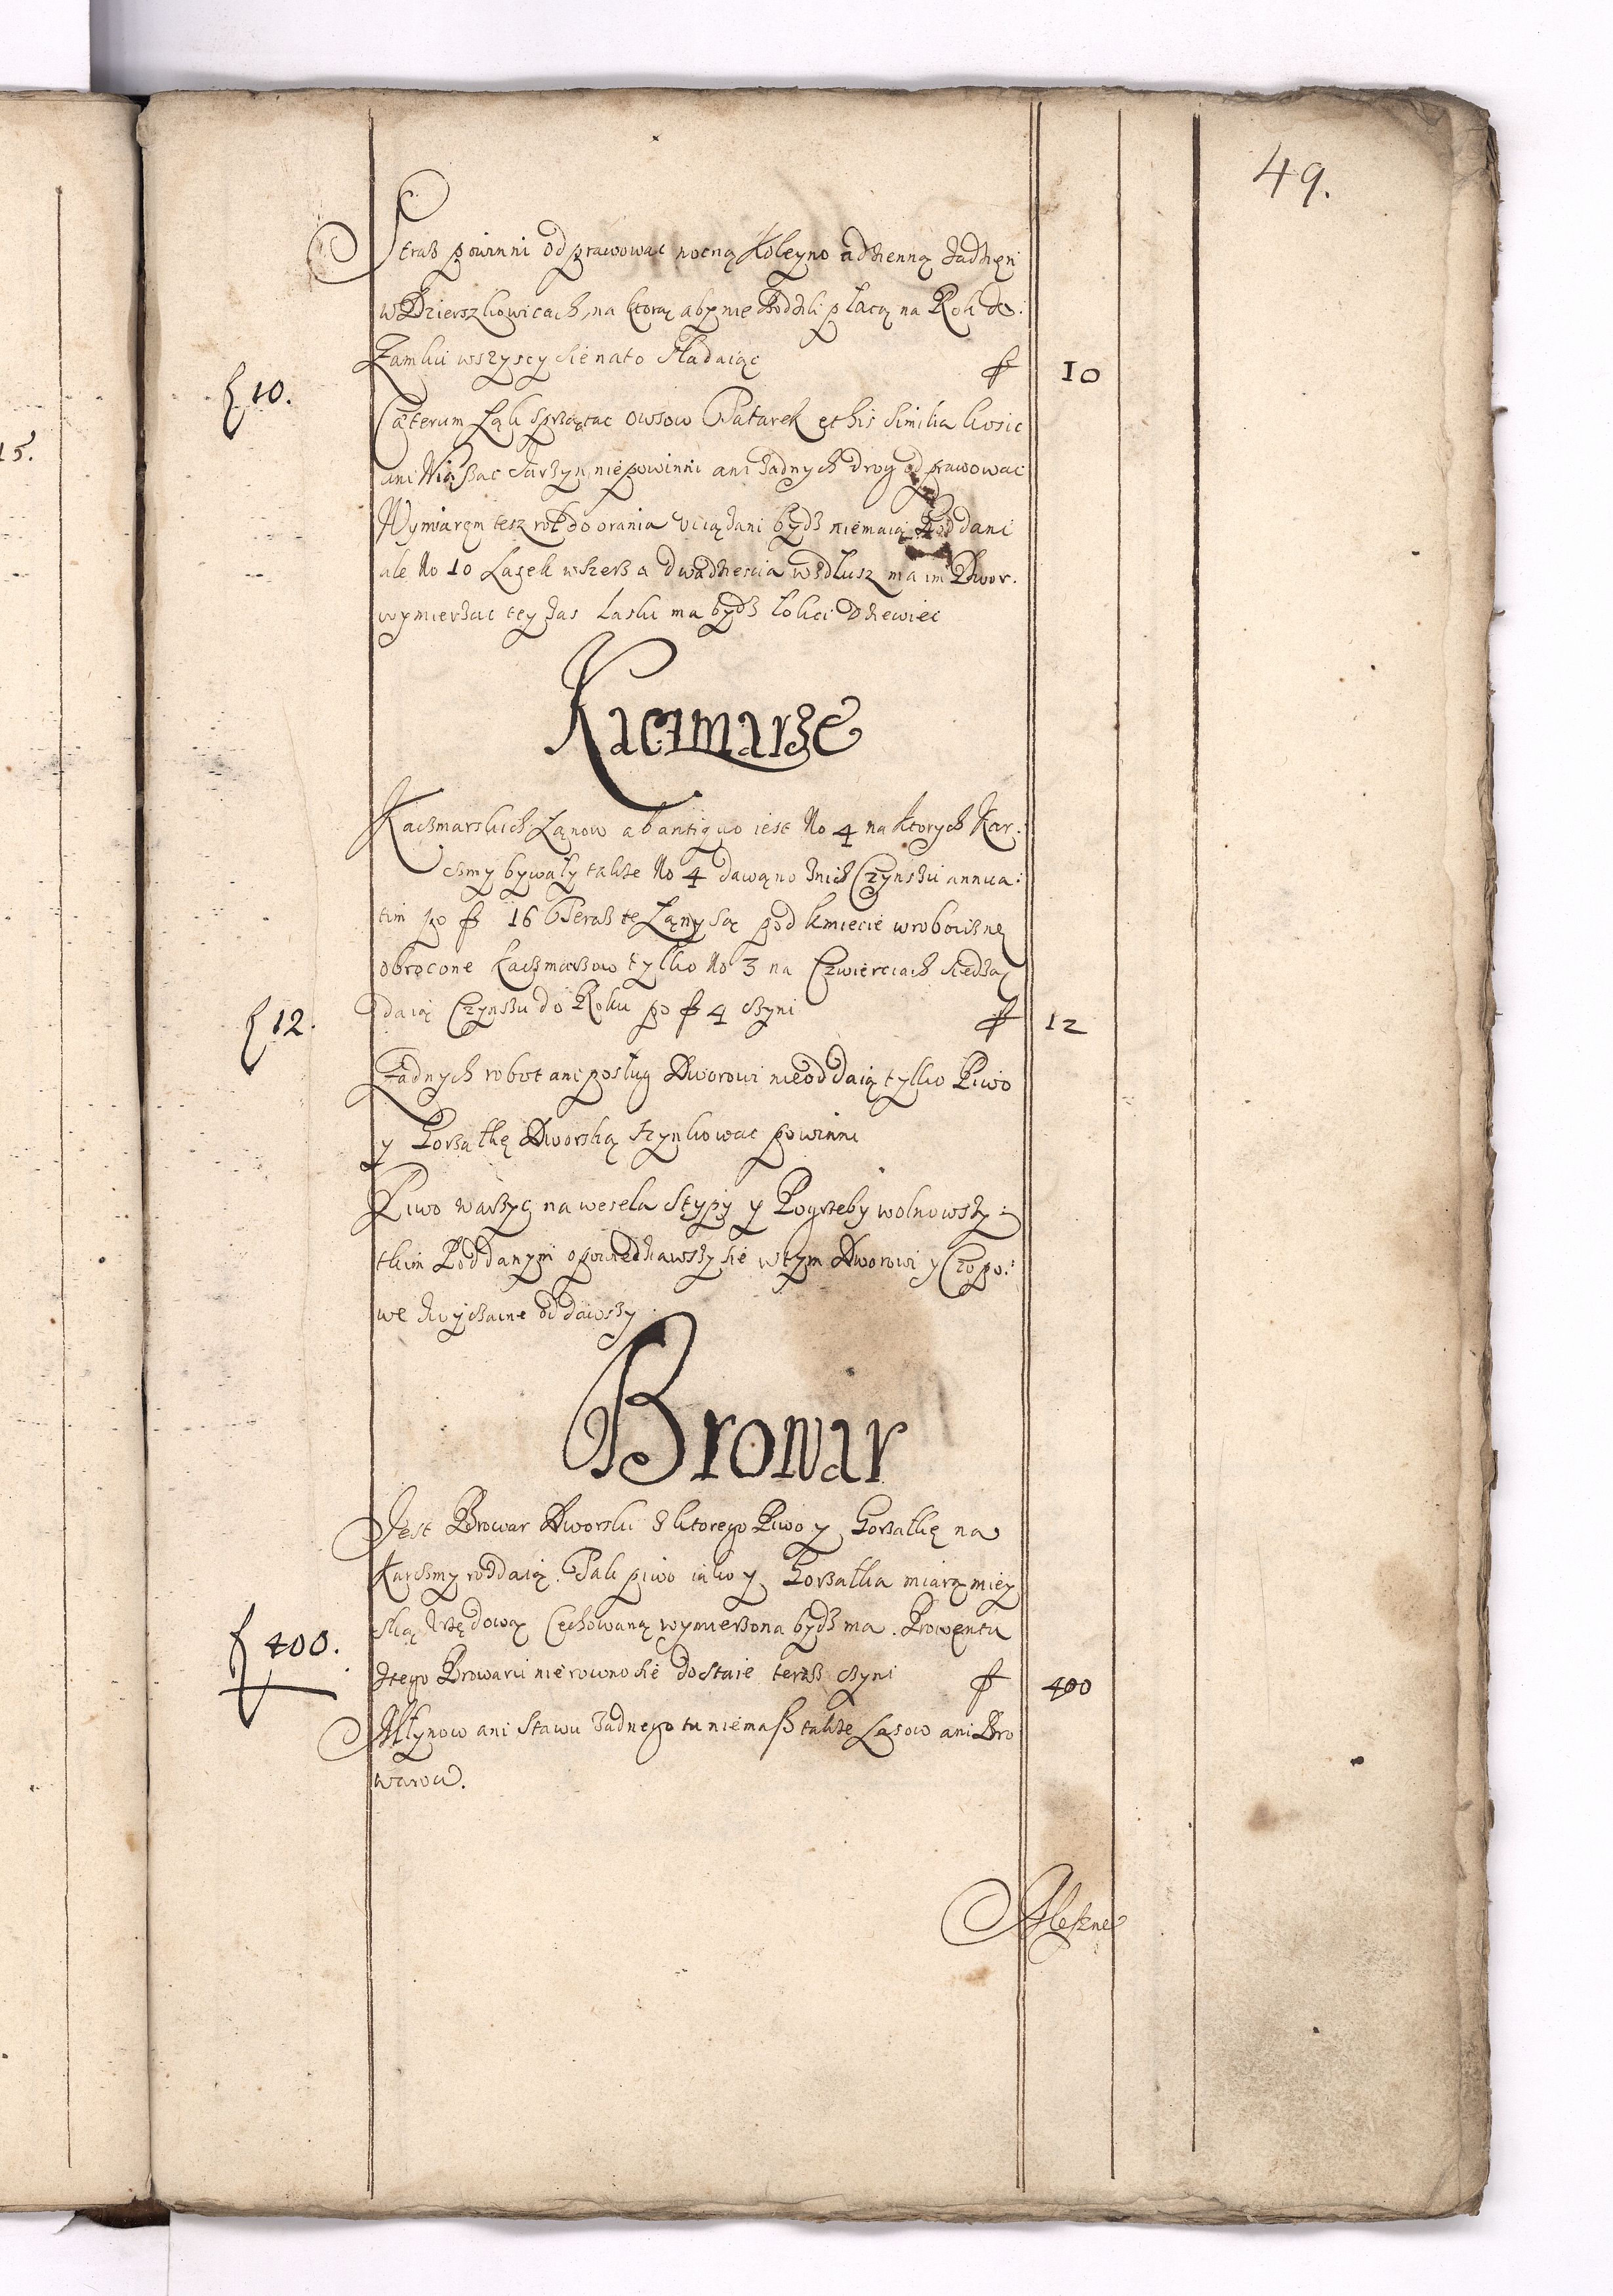 49.
Straß powinni odprawowac nocną koleyno a dzienną żadnęn
w Dzierszkowicach, na ktorą aby nie chodzili płacą na Rok do:
Zamku wszyscy sie na to składaiąc f 10
f 10.
Cæterum Łąk sprzątac owsow Tatarek et his similia kosic
ani Wiąßac Jarzyn, niepowinni ani żadnych drog odprawowac
Wymiarem tesz rol do orania uciążani bydź niemaią Poddani
ale No 10 Lasek wszerß a dwadziescia wzdłusz ma im Dwor.
wymierzac tey zas Laski ma bydź łokci dziewięc
Kaczmarze
Kaczmarskich Łanow ab antiquo iest No 4 na ktorych Kar:
czmy bywały także No 4 dawano z nich Czynszu annua:
tim po f 16 Teraß te Łany są pod kmiecie w robociznę
obrocone kaczmarzow tylko No 3 na Czwierciach siedzą
daią Czynszu do Roku po f 4 czyni f 12
f 12.
Żadnych robot ani posług Dworowi nieoddaią tylko Piwo
y Gorzałkę Dworską szynkowac powinni
Piwo warzyc na wesela Stypy y Pogrzeby wolno wszy:
tkim Poddanym opowiedziawszy sie w tym Dworowi y Czopo:
we zwyczaine oddawszy.
Browar
Jest Browar Dworski z ktorego Piwo y Gorzałkę na
Karczmy roddaią. Tak piwo iako y Gorzałka miarą miey
ską Urzędową Cechowaną wymierzona bydź ma. Prowentu
f 400.
z tego Browaru nierowno sie dostaie teraß czyni f 400
Młynow ani Stawu żadnego tu niemaß także Lasow ani Bro
warow.